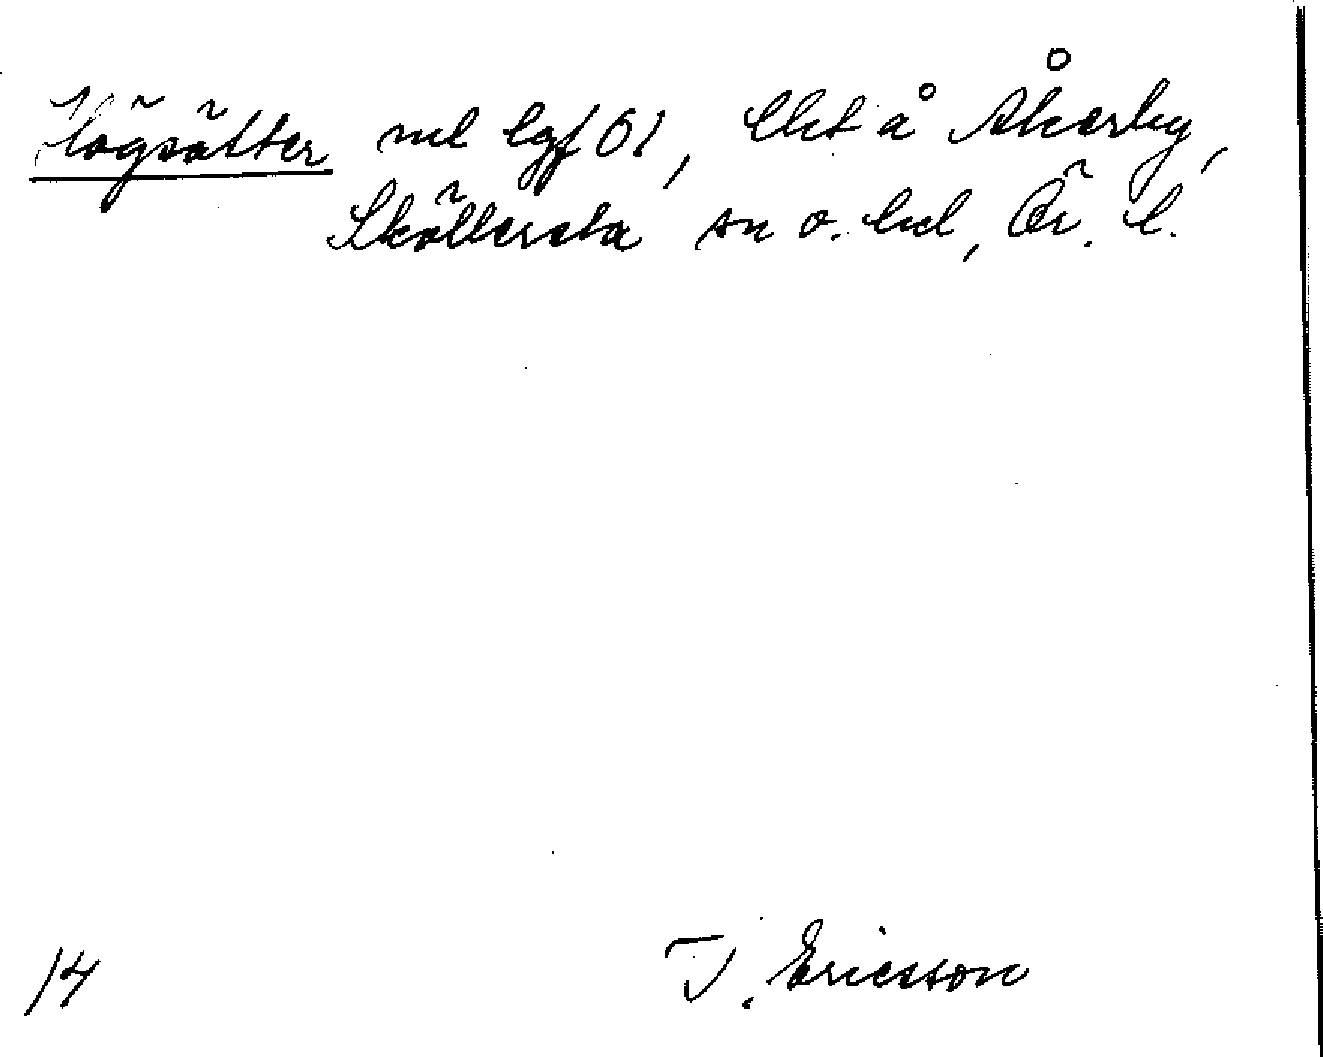 Högsätter md lgf 61, lht å Åkerby,
Sköllersta sn o. hd, Ör. l.
14 T. Ericsson